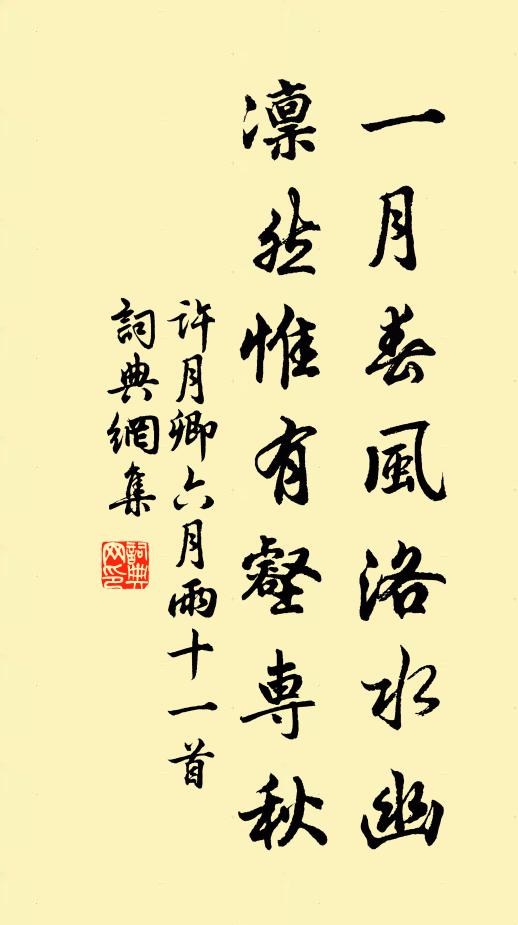 一月春風洛水幽
凜然惟有壑專秋
許月卿六月雨十一首
詞典網集
詞典
网印